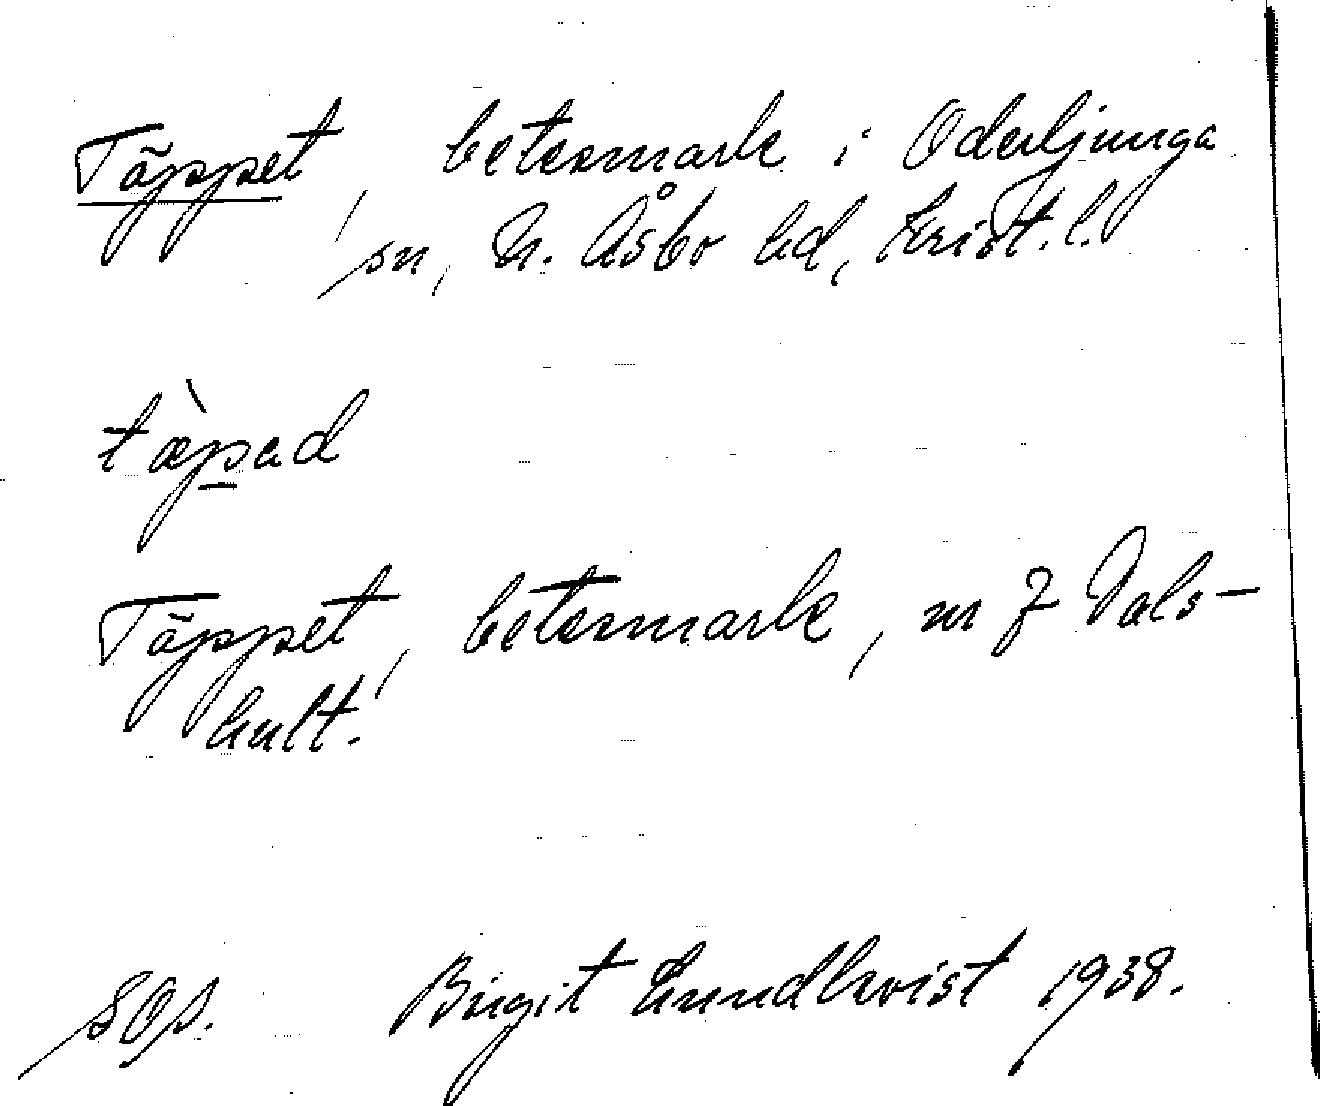 Täppet, betesmark i Oderljunga
sn, N. Åsbo hd, Krist. l.
tæ̀p̲ad
Täppet, betesmark, nr 7 Dals-
hult.
SOA. Birgit Lundkvist 1938.